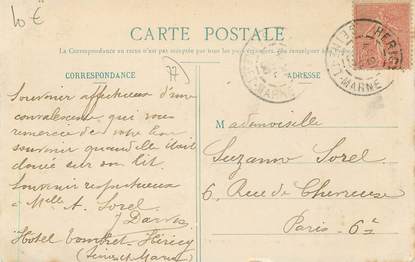 10 €
CARTE POSTALE
La Correspondance au recto n'est pas acceptée par tous les pays étrangers. (Se renseigner
CORRESPONDANCE
ADRESSE
77
HERICY
-MARNE
-MARNE
Souvenir affectueux d'une
convalescente qui vous
remercie de votre bon
souvenir quand elle était
clouée sur son lit.
Souvenir respectueux
à Mlle A. Sorel
Hotel Héricy
(Seine et Marne)
Mademoiselle
Suzanne Sorel
6, Rue de Chevreuse
Paris. 6e